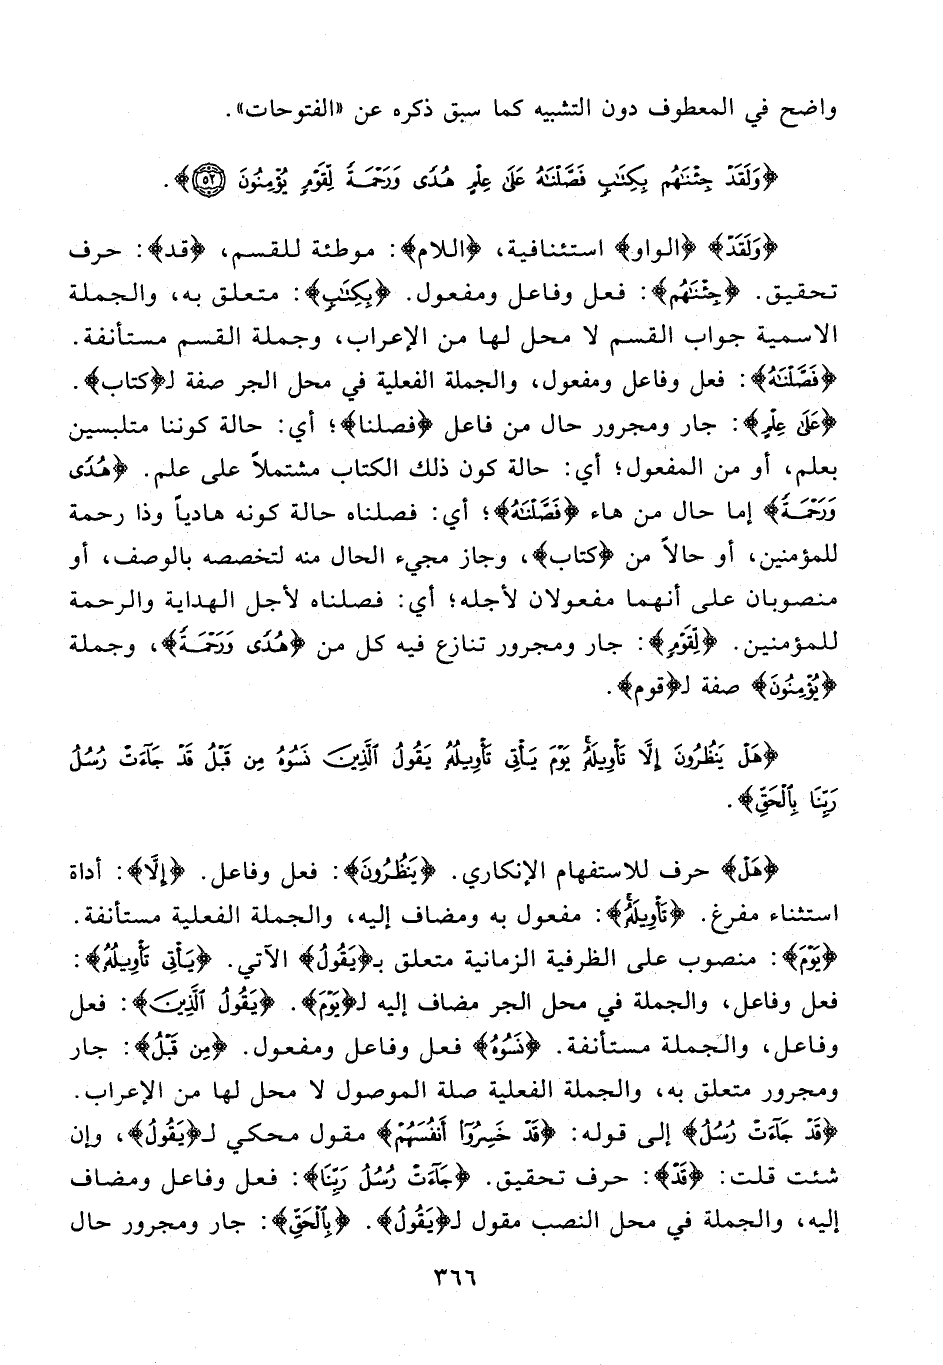 واضح في المعطوف دون التشبيه كما سبق ذكره عن «الفتوحات».
﴿وَلَقَدْ جِئْنَٰهُم بِكِتَٰبٍ فَصَّلْنَٰهُ عَلَىٰ عِلْمٍ هُدًى وَرَحْمَةً لِّقَوْمٍ يُؤْمِنُونَ ٥٢﴾.
﴿وَلَقَدْ﴾ ﴿الواو﴾ استئنافية، ﴿اللام﴾: موطئة للقسم، ﴿قد﴾: حرف
تحقيق. ﴿جِئْنَٰهُم﴾: فعل وفاعل ومفعول. ﴿بِكِتَٰبٍ﴾: متعلق به، والجملة
الاسمية جواب القسم لا محل لها من الإعراب، وجملة القسم مستأنفة.
﴿فَصَّلْنَٰهُ﴾: فعل وفاعل ومفعول، والجملة الفعلية في محل الجر صفة لـ﴿كتاب﴾.
﴿عَلَىٰ عِلْمٍ﴾: جار ومجرور حال من فاعل ﴿فصلنا﴾؛ أي: حالة كوننا متلبسين
بعلم، أو من المفعول؛ أي: حالة كون ذلك الكتاب مشتملاً على علم. ﴿هُدًى
وَرَحْمَةً﴾ إما حال من هاء ﴿فَصَّلْنَٰهُ﴾؛ أي: فصلناه حالة كونه هادياً وذا رحمة
للمؤمنين، أو حالاً من ﴿كتاب﴾، وجاز مجيء الحال منه لتخصصه بالوصف، أو
منصوبان على أنهما مفعولان لأجله؛ أي: فصلناه لأجل الهداية والرحمة
للمؤمنين. ﴿لِّقَوْمٍ﴾: جار ومجرور تنازع فيه كل من ﴿هُدًى وَرَحْمَةً﴾، وجملة
﴿يُؤْمِنُونَ﴾ صفة لـ﴿قوم﴾.
﴿هَلْ يَنظُرُونَ إِلَّا تَأْوِيلَهُۥ يَوْمَ يَأْتِى تَأْوِيلُهُۥ يَقُولُ ٱلَّذِينَ نَسُوهُ مِن قَبْلُ قَدْ جَآءَتْ رُسُلُ
رَبِّنَا بِٱلْحَقِّ﴾.
﴿هَلْ﴾ حرف للاستفهام الإنكاري. ﴿يَنظُرُونَ﴾: فعل وفاعل. ﴿إِلَّا﴾: أداة
استثناء مفرغ. ﴿تَأْوِيلَهُۥ﴾: مفعول به ومضاف إليه، والجملة الفعلية مستأنفة.
﴿يَوْمَ﴾: منصوب على الظرفية الزمانية متعلق بـ﴿يَقُولُ﴾ الآتي. ﴿يَأْتِى تَأْوِيلُهُۥ﴾:
فعل وفاعل، والجملة في محل الجر مضاف إليه لـ﴿يَوْمَ﴾. ﴿يَقُولُ ٱلَّذِينَ﴾: فعل
وفاعل، والجملة مستأنفة. ﴿نَسُوهُ﴾ فعل وفاعل ومفعول. ﴿مِن قَبْلُ﴾: جار
ومجرور متعلق به، والجملة الفعلية صلة الموصول لا محل لها من الإعراب.
﴿قَدْ جَآءَتْ رُسُلُ﴾ إلى قوله: ﴿قَدْ خَسِرُوٓا۟ أَنفُسَهُمْ﴾ مقول محكي لـ﴿يَقُولُ﴾، وإن
شئت قلت: ﴿قَدْ﴾: حرف تحقيق. ﴿جَآءَتْ رُسُلُ رَبِّنَا﴾: فعل وفاعل ومضاف
إليه، والجملة في محل النصب مقول لـ﴿يَقُولُ﴾. ﴿بِٱلْحَقِّ﴾: جار ومجرور حال
٣٦٦